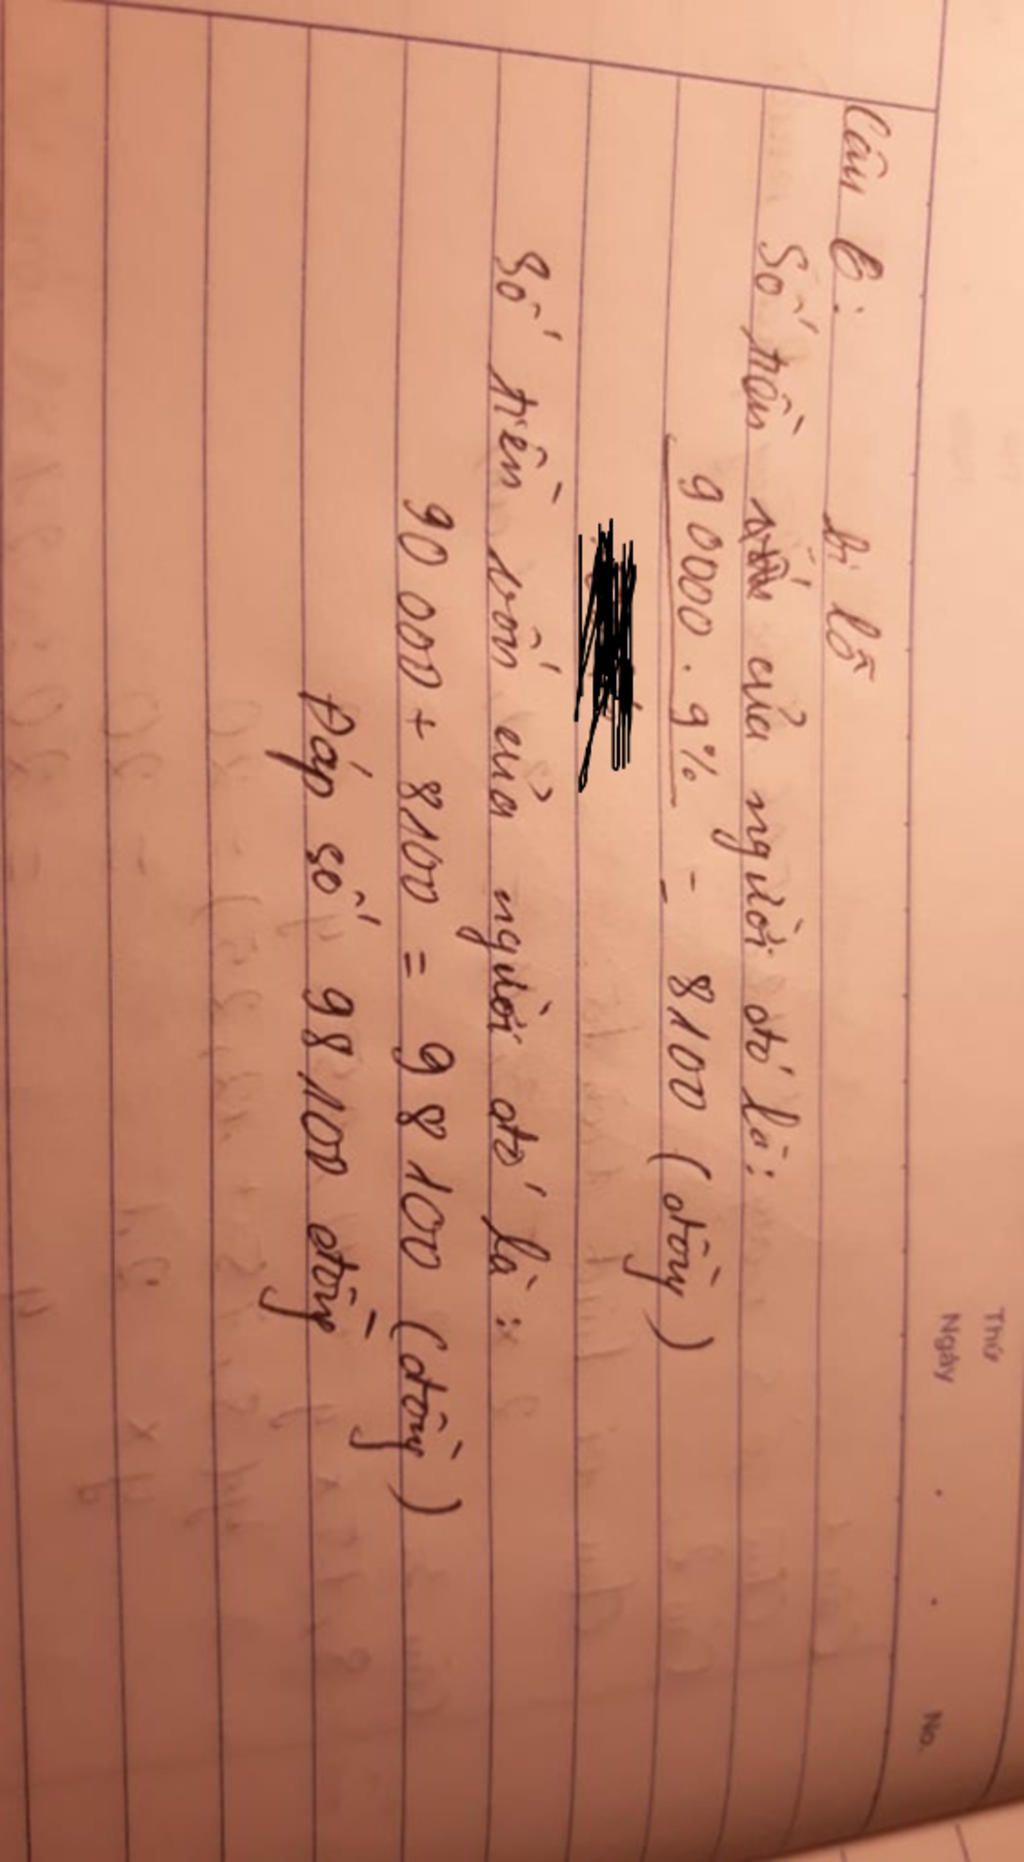 Thứ
Ngày . . No.
Câu 6: bị lỗ
Số tiền của người đó là:
90000 . 9% = 8100 (đồng)
Số tiền vốn của người đó là:
90 000 + 8100 = 98 100 (đồng)
Đáp số 98 100 đồng